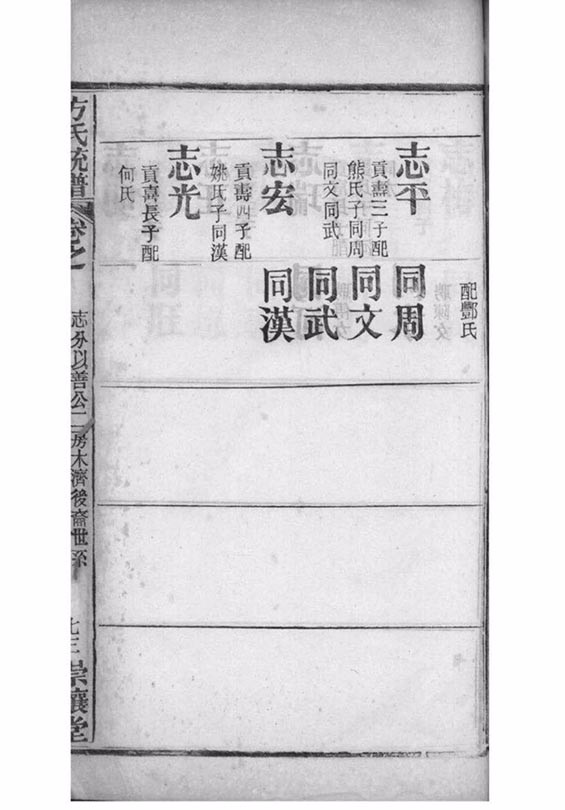 配酆氏
志平
貢壽三子配
熊氏子同周
同文同武
志宏
貢壽四子配
姚氏子同漢
志光
貢喜長子配
何氏
同周
同文
同武
同漢
方氏統譜
卷之一
志分以善公二房木濟後裔世系
崇讓堂